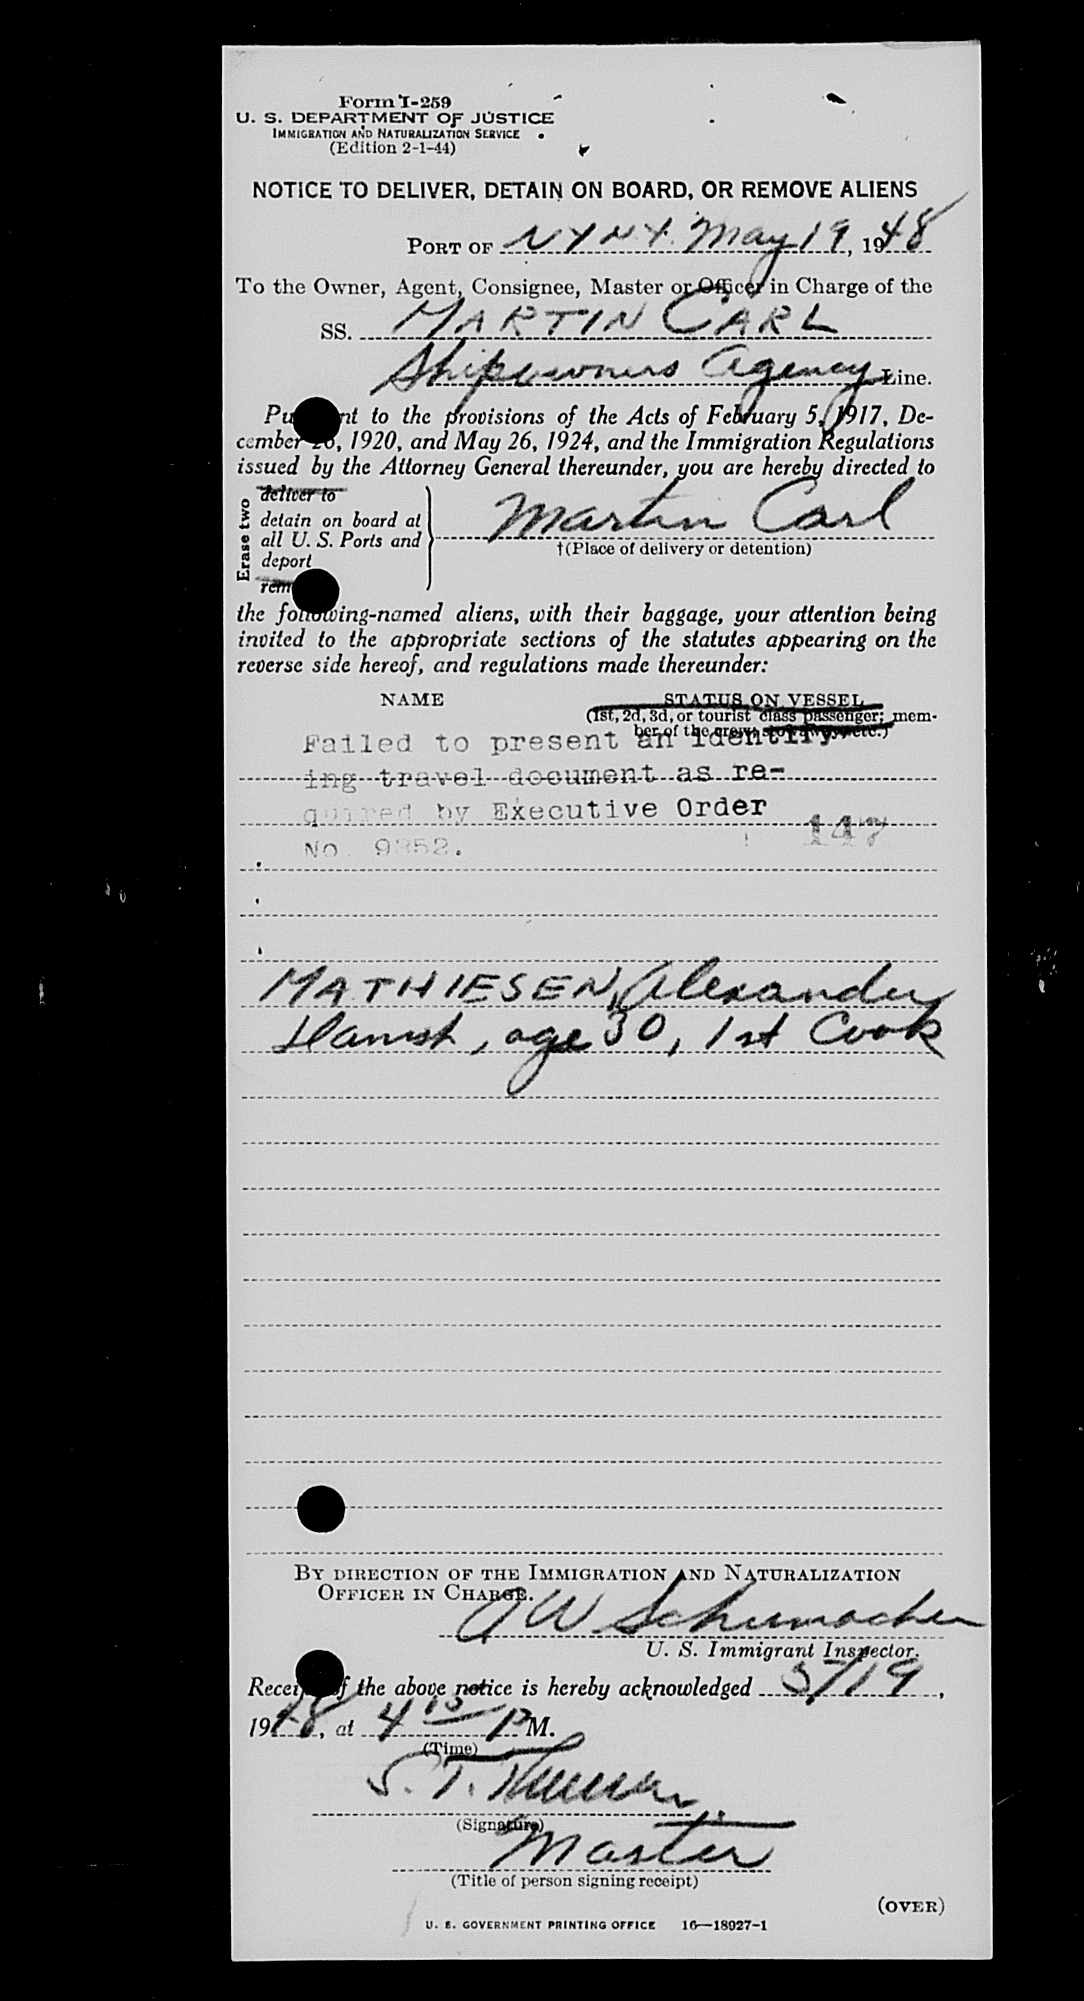 Form I-259
U. S. DEPARTMENT OF JUSTICE
IMMIGRATION AND NATURALIZATION SERVICE
(Edition 2-1-44)
NOTICE TO DELIVER, DETAIN ON BOARD, OR REMOVE ALIENS
PORT OF N Y N.Y. May 19, 1948
To the Owner, Agent, Consignee, Master or Officer in Charge of the
SS. MARTIN CARL
Shipowners Agency Line.
Pu nt to the provisions of the Acts of February 5, 1917, De-
cember 26, 1920, and May 26, 1924, and the Immigration Regulations
issued by the Attorney General thereunder, you are hereby directed to
Erase two
deliver to
detain on board at
all U. S. Ports and
deport
rem
Martin Carl
†(Place of delivery or detention)
the following-named aliens, with their baggage, your attention being
invited to the appropriate sections of the statutes appearing on the
reverse side hereof, and regulations made thereunder:
NAME STATUS ON VESSEL
(1st, 2d, 3d, or tourist class passenger; mem-
ber of the crew; stowaway; etc.)
Failed to present an identify-
ing travel document as re-
quired by Executive Order
No. 9352. 147
MATHIESEN, Alexander
Danish, age 30, 1st Cook
BY DIRECTION OF THE IMMIGRATION AND NATURALIZATION
OFFICER IN CHARGE.
Schumacher
U. S. Immigrant Inspector.
Receipt of the above notice is hereby acknowledged 5/19,
1948, at 4 15 P M.
(Time)
S. T.
(Signature)
Master
(Title of person signing receipt)
(OVER)
U. S. GOVERNMENT PRINTING OFFICE 16—18927-1